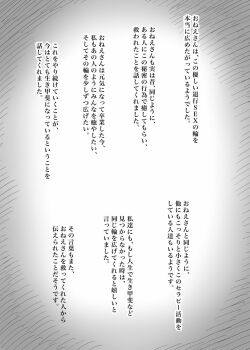 おねえさんは、この優しい退行SEXの輪を
本当に広めたがっているようでした。
おねえさんも実は昔、同じように、
ある人にこの秘密の行為で癒してもらい、
救われたことを話してくれました。
おねえさんは元気になって卒業した今、
私もあの人のようにみんなを癒やしたい、
そしてその輪を少しずつ広げたい。
これをやり続けていくことが、
今はとても生き甲斐になっているということを
話してくれました。
おねえさんと同じように、
他にもこっそりと小さくこのセラピー活動を
している人達もいるようです。
私達にも、もし人生で生き甲斐など
見つからなかった時は、
同じ輪を広げてくれると嬉しいと
言っていました。
その言葉もまた、
おねえさんを救ってくれた人から
伝えられたことだそうです。